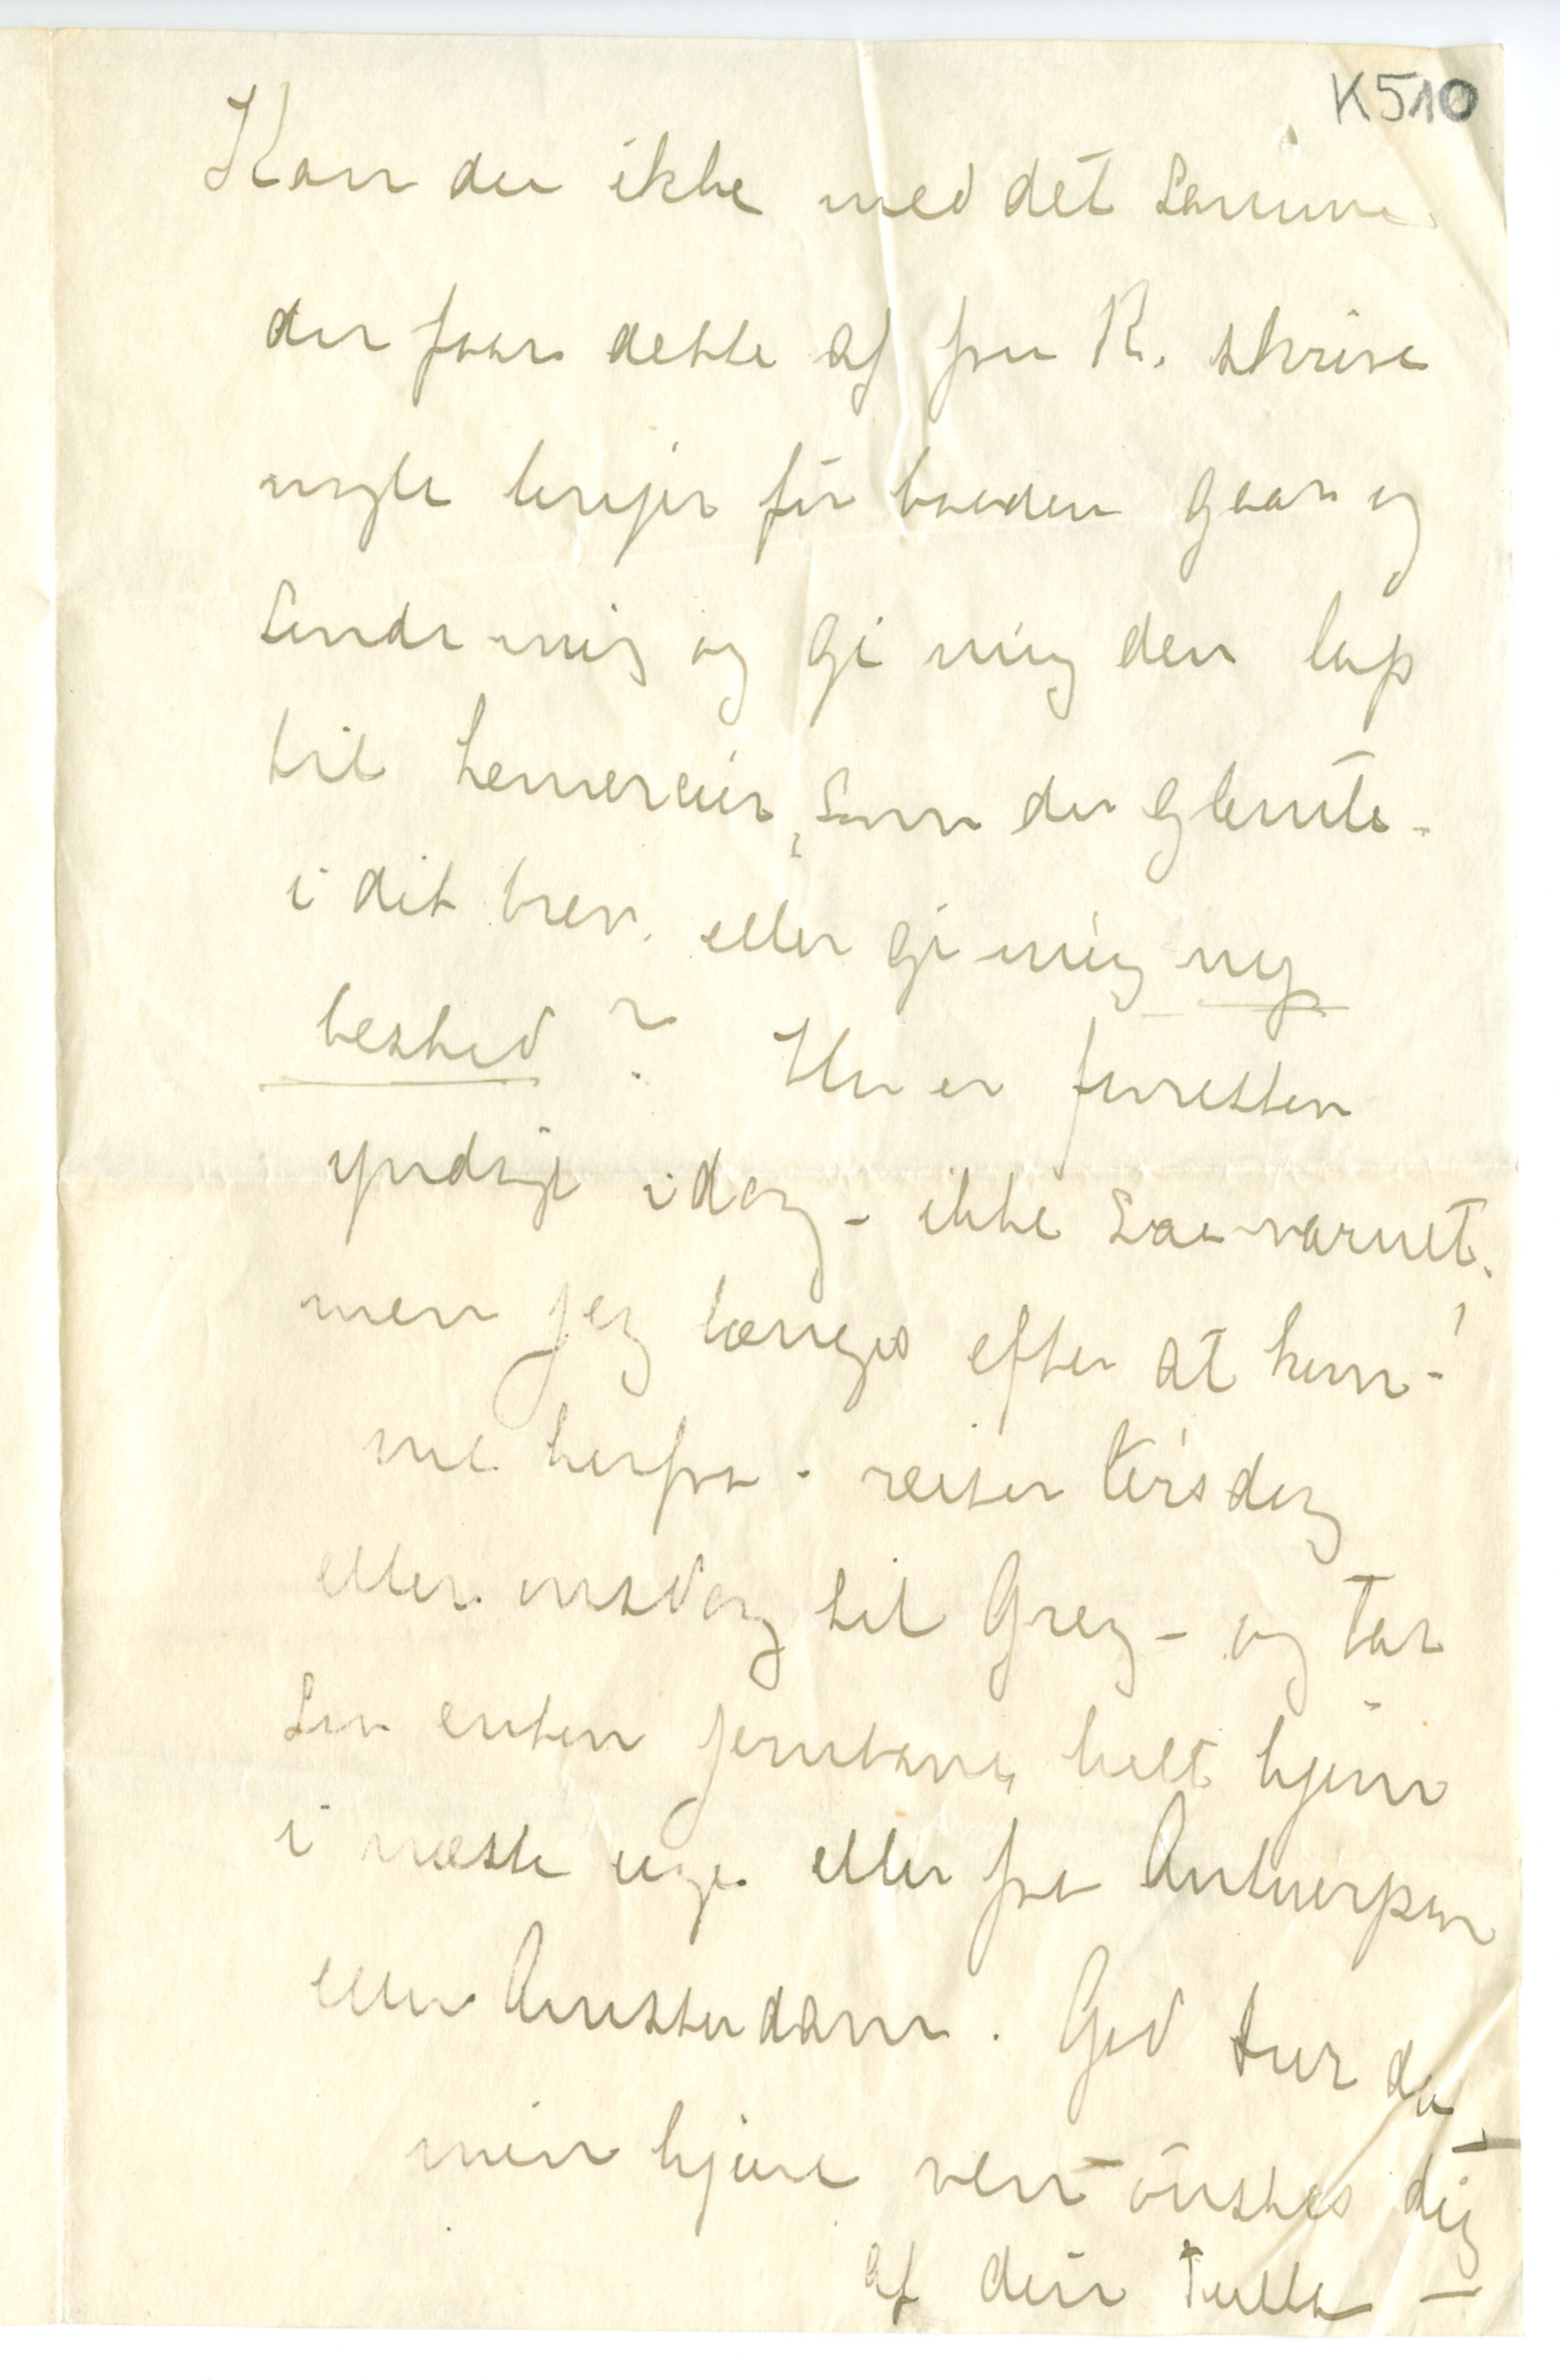 K510
Kan du ikke med det samme
du faar dette af fru R. skrive
nogle linjer før baaden gaar og
sende mig og gi mig den lap
til Lemercier, som du glemte
i dit brev. eller gi mig ny
besked? Her er forresten
yndigt idag – ikke saa varmt.
men jeg længes efter at kom-
me herfra. reiser tirsdag
eller onsdag til Grez – og tar
saa enten jernbane helt hjem
i næste uge. eller fra Antwerpen
eller Amsterdam. God tur da
min kjære ven ønskes dig
af din Tulla –